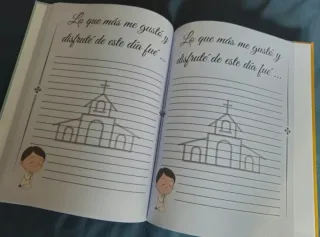 Lo que más me gustó, y
disfruté de este día fué ...
Lo que más me gustó, y
disfruté de este día fué ...